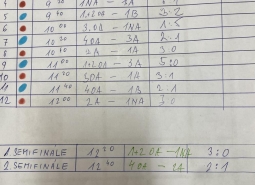 4 9²⁰ 1NA - 3A
5 9⁴⁰ 1+2OA - 1B 2:2
6 10⁰⁰ 3.OA - 1NA 1:5
7 10²⁰ 4OA - 3A 2:1
8 10⁴⁰ 2A - 1A 3:0
9 11⁰⁰ 1+2OA - 3A 5:0
10 11²⁰ 5OA - 1A 3:1
11 11⁴⁰ 4OA - 1B 2:1
12 12⁰⁰ 2A - 1NA 3:0
1 SEMIFINALE 12²⁰ 1+2OA - 1NA 3:0
2 SEMIFINALE 12⁴⁰ 4OA - 2A 2:1